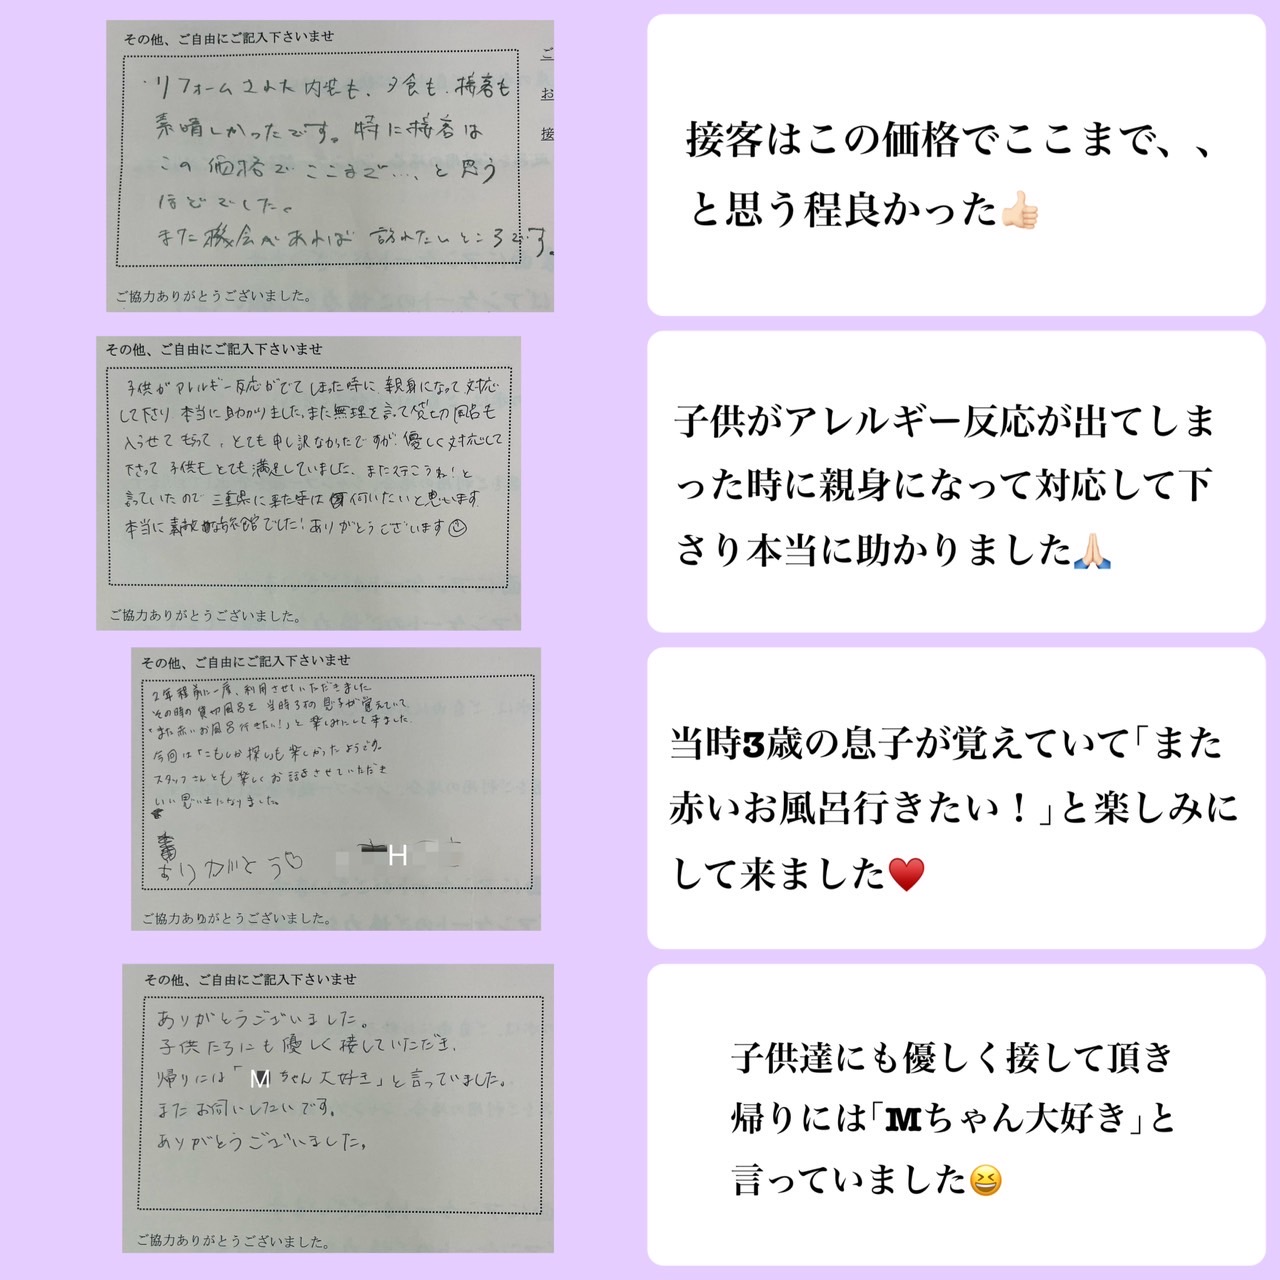 その他、ご自由にご記入下さいませ
・リフォームされた内装も、夕食も、接客も
素晴しかったです。特に接客は
この価格でここまで…、と思う
ほどでした。
また機会があれば訪れたいところです。
ご協力ありがとうございました。
接客はこの価格でここまで、、
と思う程良かった👍🏻
その他、ご自由にご記入下さいませ
子供がアレルギー反応がでてしまった時に、親身になって対応
して下さり本当に助かりました。また無理を言って貸切風呂も
入らせてもらって、とても申し訳なかったですが、優しく対応して
下さって子供もとても満足していました。また行こうね！と
言っていたので三重県に来た時は伺いたいと思います。
本当に素敵な旅館でした！ありがとうございます
ご協力ありがとうございました。
子供がアレルギー反応が出てしま
った時に親身になって対応して下
さり本当に助かりました🙏🏻
その他、ご自由にご記入下さいませ
2年程前に一度、利用させていただきました
その時の貸切風呂を当時3才の息子が覚えていて
「また赤いお風呂行きたい！」と楽しみにして来ました。
今回は「こもしか探しも楽しかったようです。
スタッフさんとも楽しくお話をさせていただき
いい思い出になりました。
ありがとう♡
H
ご協力ありがとうございました。
当時3歳の息子が覚えていて「また
赤いお風呂行きたい！」と楽しみに
して来ました♥️
その他、ご自由にご記入下さいませ
ありがとうございました。
子供たちにも優しく接していただき、
帰りには「Mちゃん大好き」と言っていました。
またお伺いしたいです。
ありがとうございました。
ご協力ありがとうございました。
子供達にも優しく接して頂き
帰りには「Mちゃん大好き」と
言っていました😆